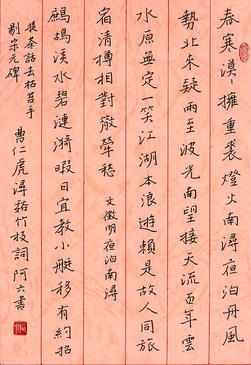 春寒漠〻擁重裘燈火南潯夜泊舟風
勢北來疑雨至波光南望接天流百年雲
水原無定一笑江湖本浪遊賴是故人同旅
宿清樽相對散羈愁 文徵明夜泊南潯
鸕鶿溪水碧漣漪暇日宜教小艇移有約招
提茶話去拓苔手
剔宋元碑
曹仁虎潯谿竹枝詞 阿六書